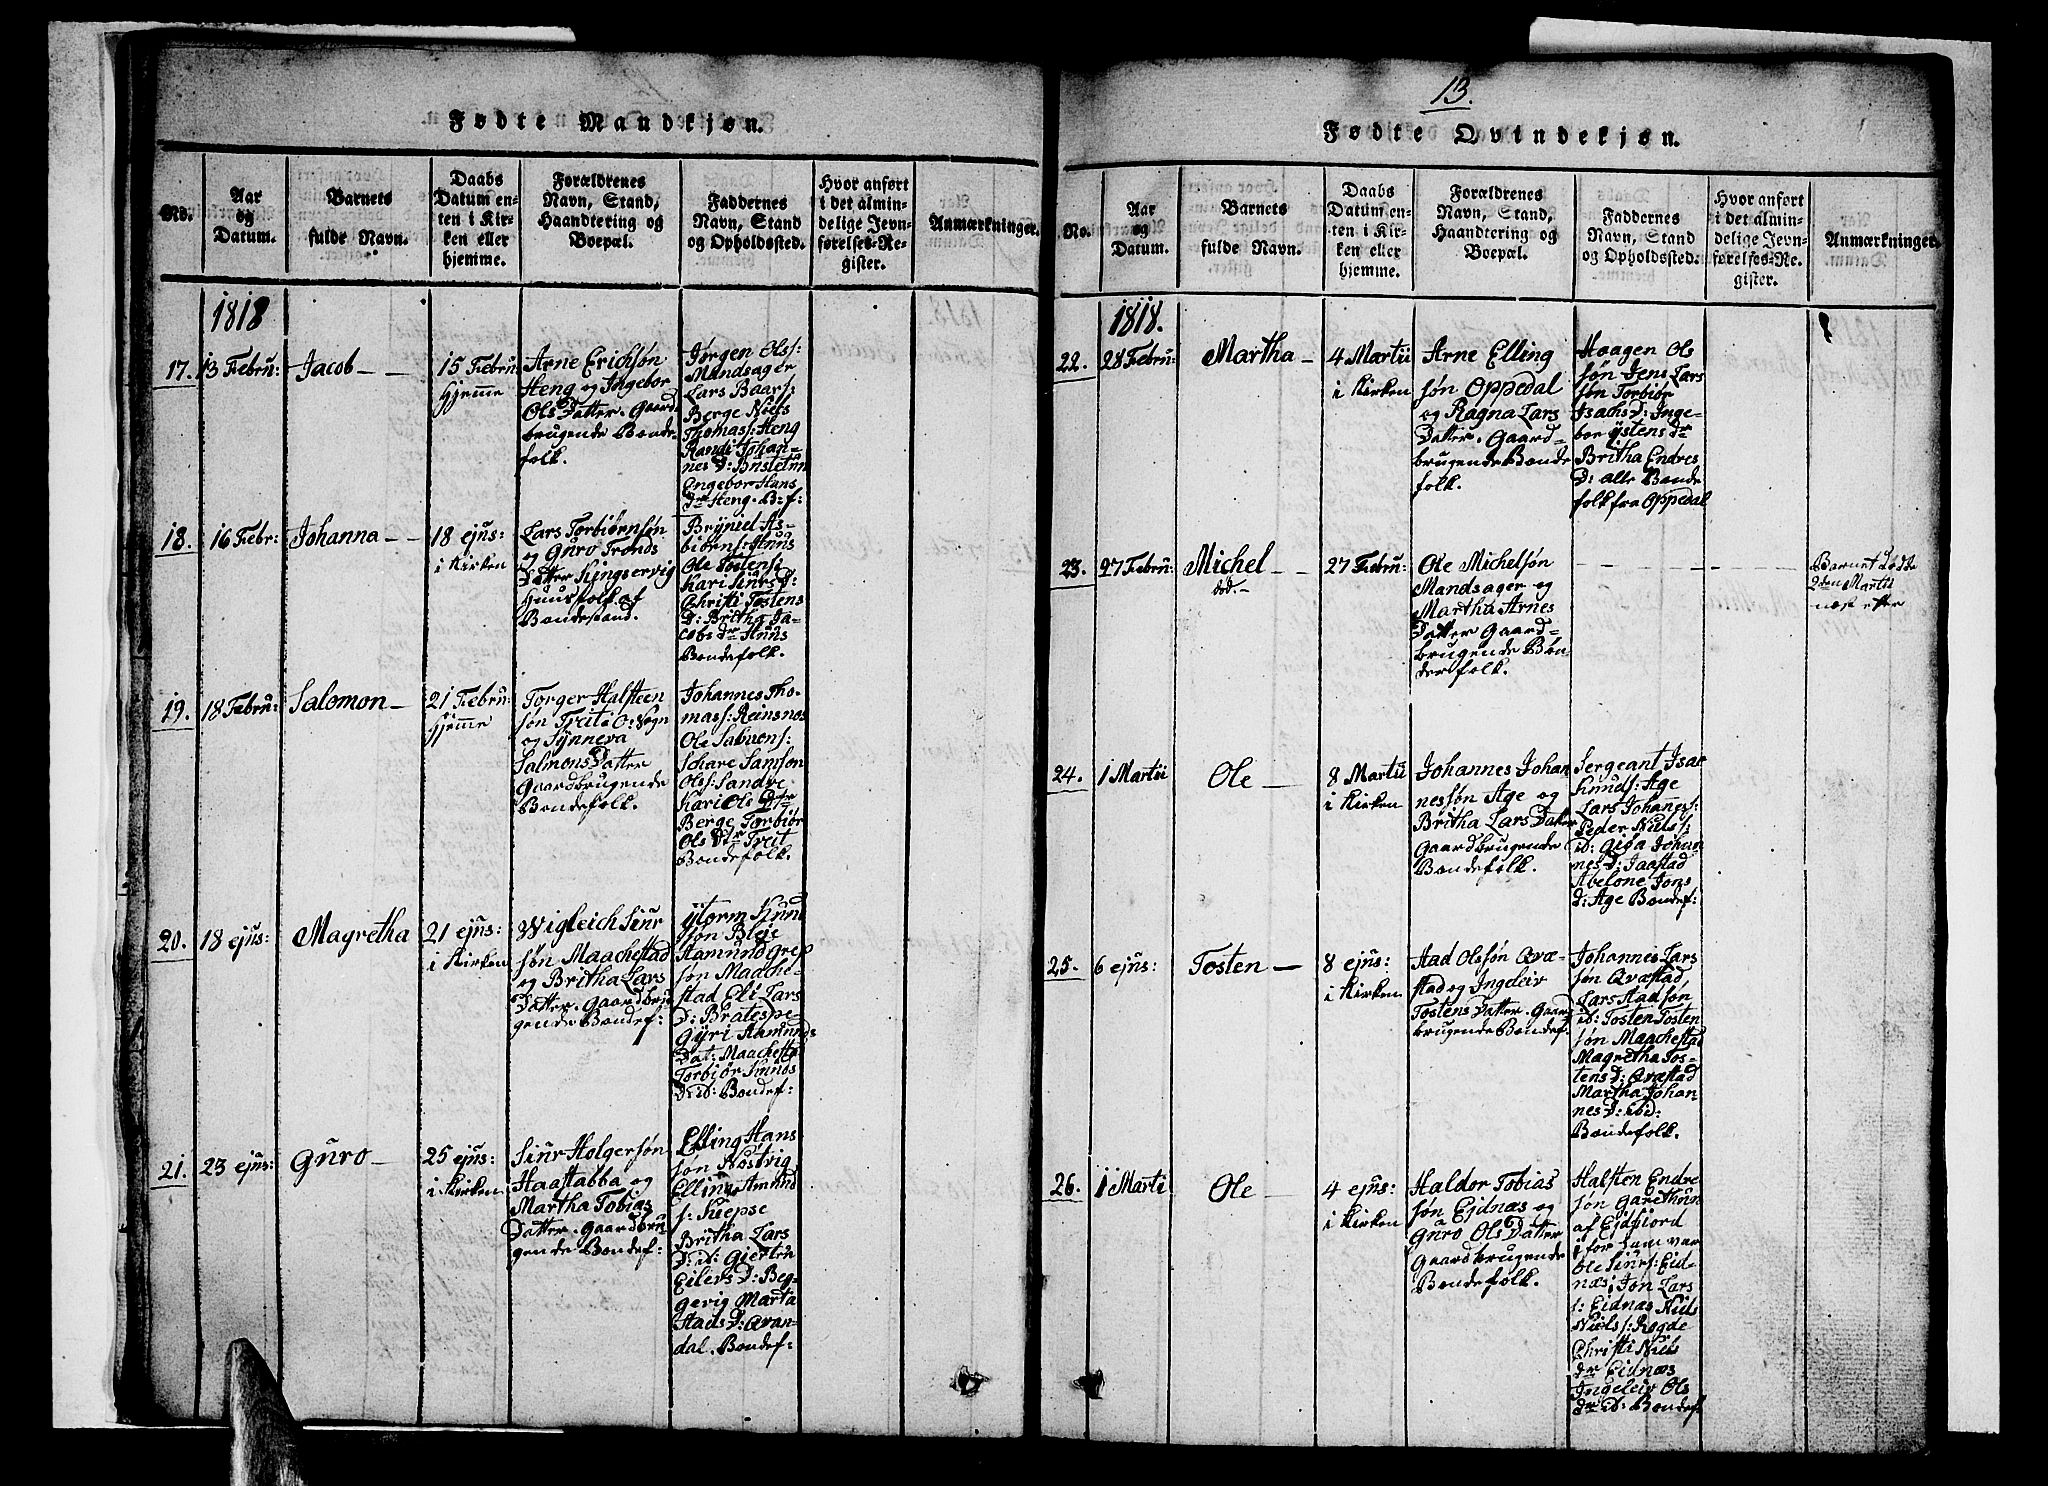 Fødte Mandkjøn.
No.
Aar
og
Datum.
Barnets
fulde Navn.
Daabs
Datum en-
ten i Kir-
ken eller
hjemme.
Forældrenes
Navn, Stand,
Haandtering og
Boepæl.
Faddernes
Navn, Stand
og Opholdssted.
Hvor anført
i det almin-
delige Jevn-
førelses-Re-
gister.
Anmærkninger.
1818
17.
13 Febru:
Jacob
15 Febru
hjemme
Arne Erichsøn
Heng og Ingebor
Ols Datter. Gaard
brugende Bonde-
folk.
Jørgen Ols:
Mandsager
Lars Baars:
Berge Niels
Thomas: Heng
Randi Johan-
nes D:
Ingebor Hans
dr Heng. B: f:
18.
16 Febr:
Johanna
18 ejus:
i Kirken
Lars Torbiørnsøn
og Guro Tronds
Datter Kingservig
Huusfolk af
Bondestand.
Bryniel As-
biørns: Huus
Ole Tostens:
Kari Siurs D:
Christi Tostens
D: Britha Ja-
cobs dr Huus
Bondefolk.
19.
18 Febru:
Salomon
21 Febru:
hjemme
Torger Halsteen
søn Treit
og Synneva
Salmons Datter
Gaardbrugende
Bondefolk.
Johannes Tho-
mass: Reinsnos
Ole
Schare Samson
Ols: Sandre
Kari Ols Dtr
Berge Torbiør
Ols Dtr Treit
Bondefolk.
20.
18 ejus:
Magretha
21 ejus:
i Kirken
Wigleich Siur
søn Maachestad
og Britha Lars
Datter. Gaardbru
gende Bondef:
Ystorm Knud
søn Bleje
Aamund
søn Maache-
stad Eli Lars
D: Bratespe
Gyri Aamunds
Dat: Maachesta
Torbiør Knuds
D: ib: Bondef:
21.
23 ejus:
Guro
25 ejus:
i Kirken
Siur Holgersøn
Haastabba og
Martha Tobias
Datter. Gaardbru
gende Bondef:
Elling Hans
søn Nostvig
Elling Amund
s: Siepse
Britha Lars
D: ib: Giertru
Eilevs D: Beg-
gevig Marta
Stads D: Qvan-
dal. Bondef:
13.
Fødte Qvindekjøn.
No.
Aar
og
Datum.
Barnets
fulde Navn.
Daabs
Datum en-
ten i Kir-
ken eller
hjemme.
Forældrenes
Navn, Stand,
Haandtering og
Boepæl.
Faddernes
Navn, Stand
og Opholdssted.
Hvor anført
i det almin-
delige Jevn-
førelses-Re-
gister.
Anmærkninger.
1818.
22.
28 Febru:
Martha
4 Martii
i Kirken
Arne Elling
søn Oppedal
og Ragna Lars
Datter. Gaard-
brugende Bonde
folk.
Haagen Ols
søn Jens Lars
søn Torbiør
Isachs D: Inge-
bor Ystens dr
Britha Endres
D: alle Bonde
folk fra Oppedal
23.
27 Febru:
Michel
død.
27 Febru:
Ole Michelsøn
Mandsager og
Martha Arnes
Datter Gaard-
brugende Bon-
defolk.
Barnet døde
2den Martii
næst efter
24.
1 Martii
Ole
8 Martii
i Kirken
Johannes Johan
nessøn Age og
Britha Lars Datter
Gaardbrugende
Bondefolk.
Sergeant Isac
Knuds: Age
Lars Johaness:
Peder Niels:
ib: Giøa Johan
nes D: Jaastad
Abelone Jons
d: Age Bondef:
25.
6 ejus:
Tosten
8 ejus:
i Kirken
Stad Olssøn Qvæ-
stad og Ingeleiv
Tostens Datter. Gaard
brugende Bondef.
Johannes Lars
søn Qvæstad
Lars Stadsøn
ib: Tosten Tosten
søn Maachestad
Magretha Tos-
tens d: Qvæstad
Martha Johan
nes D: ibid:
Bondefolk.
26.
1 Marti
Ole
4 ejus:
i Kirken
Haldor Tobias
søn Ejdnæs og
Guro Ols Datter
Gaardbrugende
Bondefolk.
Halsten Endre
søn Garethun
af Eidfiord
i for ham var
Ole Siurs: Eid-
næs; Jon Lars
s: Eidnæs Niels
Niels s: Rogde
Christi Niels
dr Eidnæs
Ingeleiv Ols
dr ib: Bondef